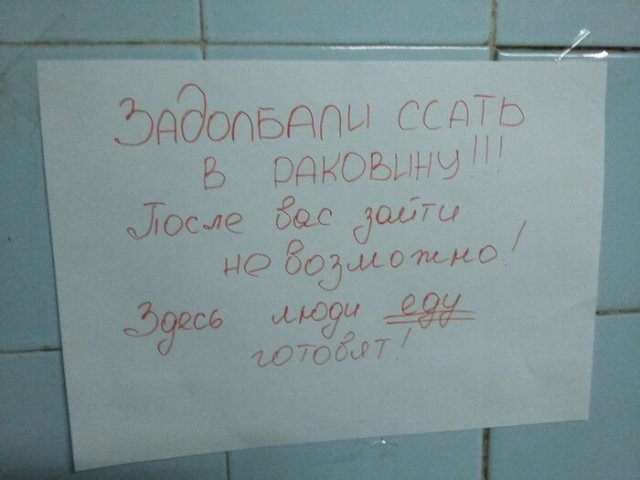 ЗАДОЛБАЛИ ССАТЬ
В РАКОВИНУ!!!
После вас зайти
не возможно!
Здесь люди еду
готовят!